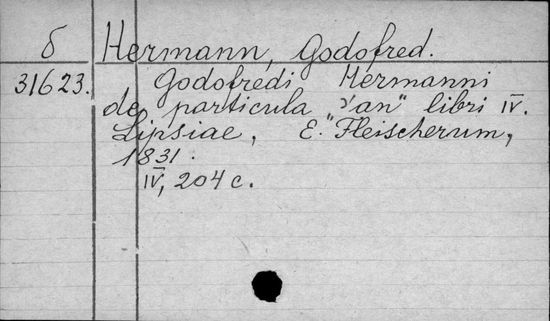 б Hermann, Godofred.
31623. Godofredi Hermanni
de particula "an" libri IV.
Lipsiae, E. Fleischerum,
1831.
IV, 204 c.